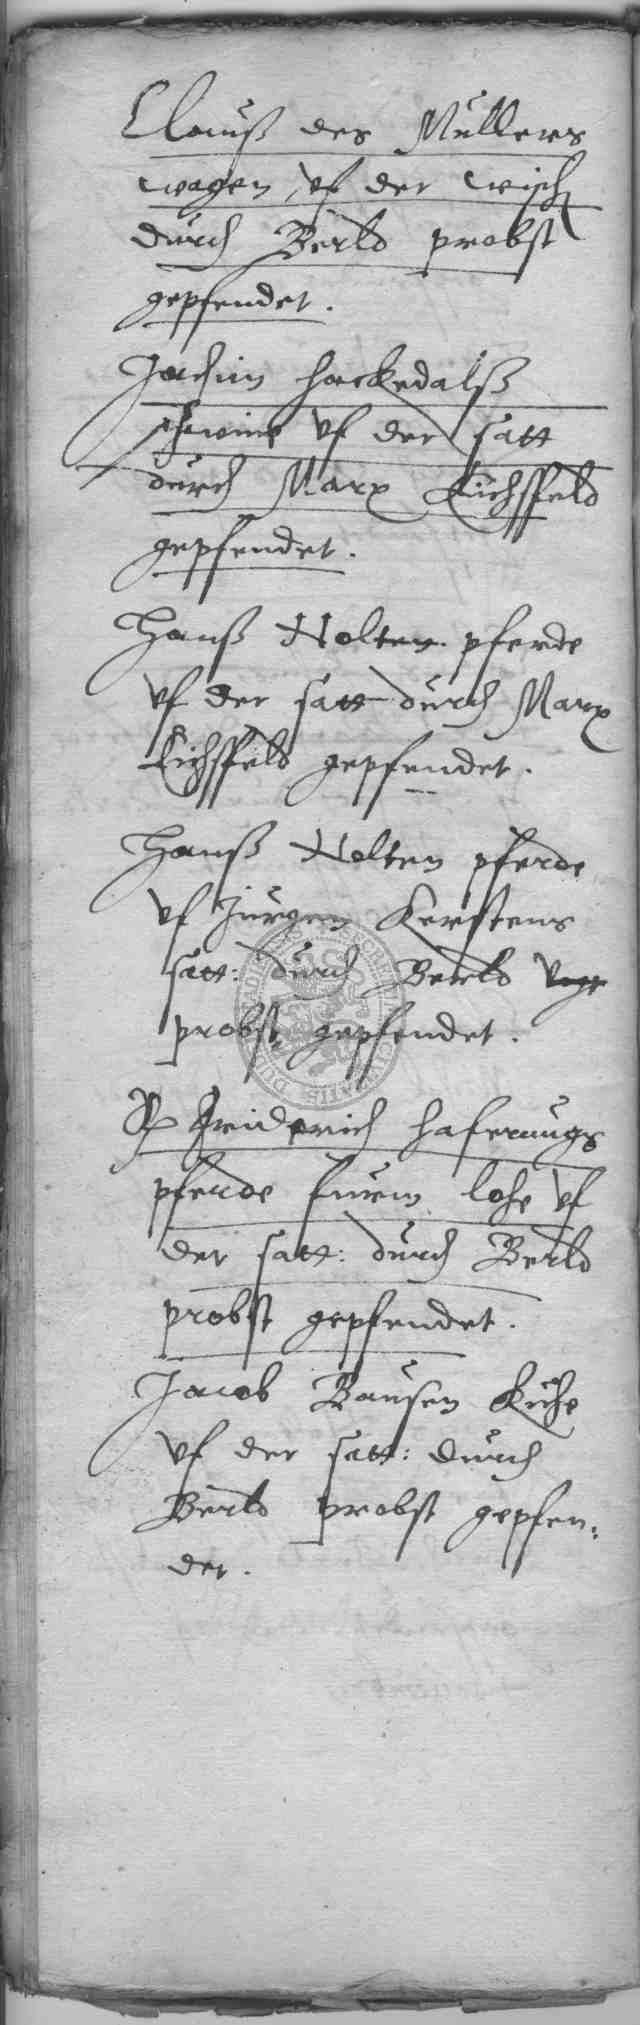 Clauß des Müllers
wagen, vf der wisch
durch Berld probst
gepfendet.
Jochim hackedalß
schwine vf der satt
durch Marx Eichsfeld
gepfendet.
Hanß Nolten pferde
vf der satt durch Marx
Eichsfeld gepfendet.
Hanß Nolten pferde
vf Jürgen Kerstens
satt: durch Berld
probst gepfendet.
Friderich hafernugs
pferde fürm lohe vf
der satt: durch Berld
probst gepfendet.
Jacob Bausen Kühe
vf der satt: durch
Berld probst gepfen:
det.